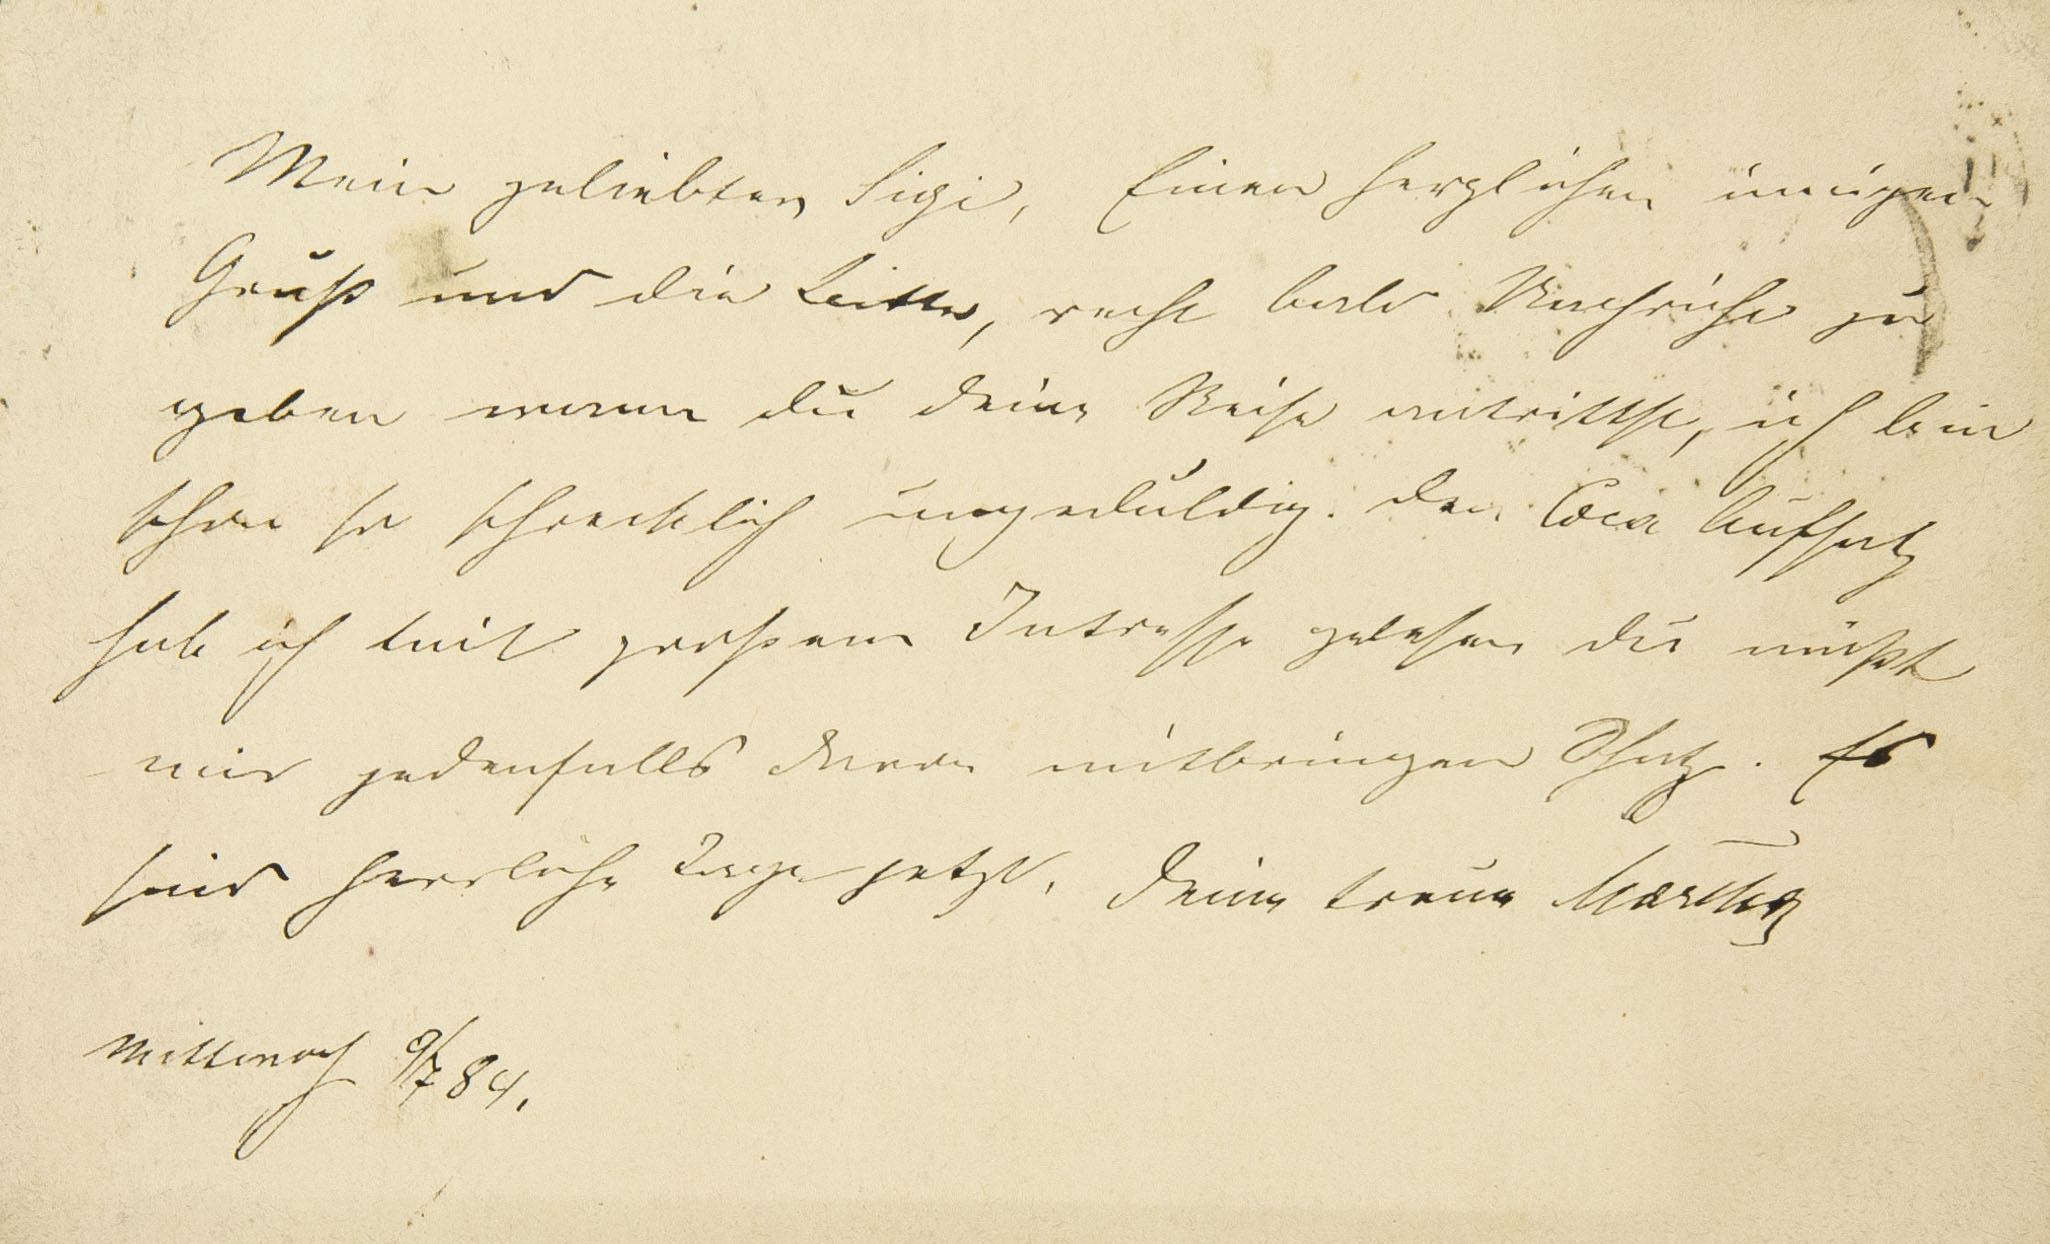 Mein geliebter Sigi, Einen herzlichen innigen
Gruß und die Bitte, recht bald Nachricht zu
geben wann du deine Reise antrittst, ich bin
schon so schrecklich ungeduldig. Den Coca Aufsatz
hab ich mit großem Intresse gelesen du mußt
mir jedenfalls davon mitbringen Schatz. Es
sind herrliche Tage jetzt. Deine treue Martha
Mittwoch 9/7 84.